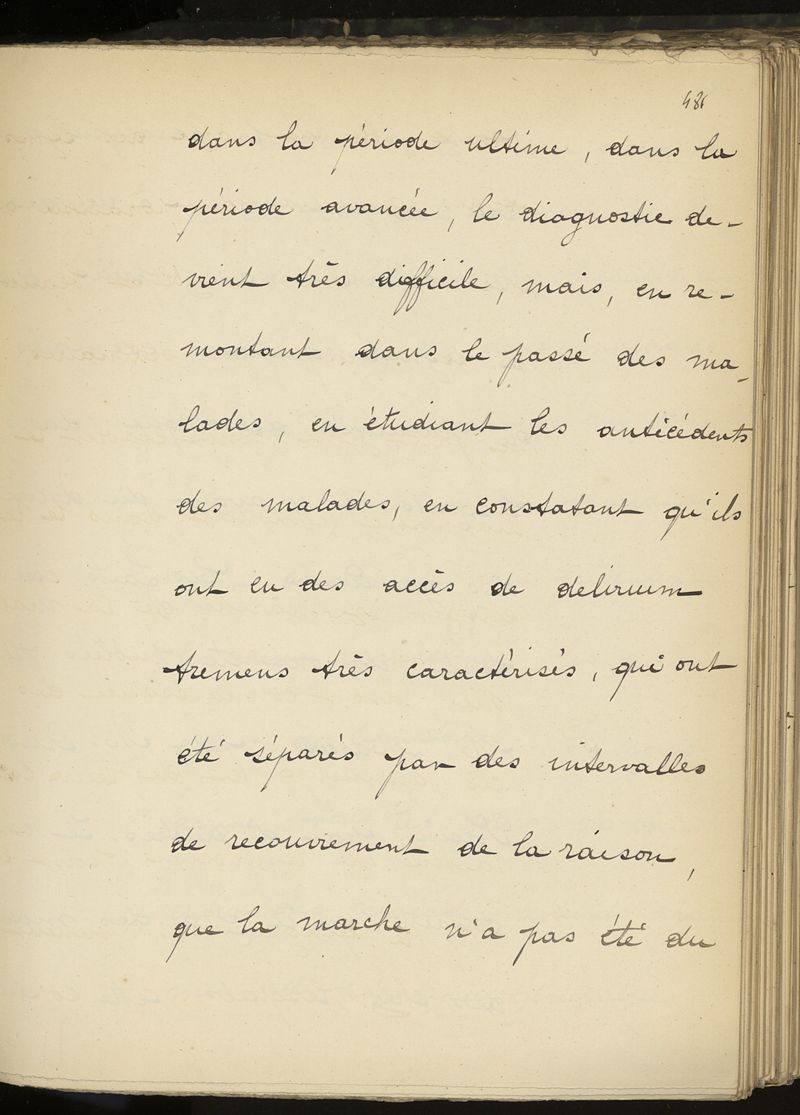 486
dans la période ultime, dans la
période avancée, le diagnostic de-
vient très difficile, mais, en re-
montant dans le passé des ma-
lades, en étudiant les antécédents
des malades, en constatant qu'ils
ont eu des accès de delirium
tremens très caractérisés, qui ont
été séparés par des intervalles
de recouvrement de la raison,
que la marche n'a pas été du